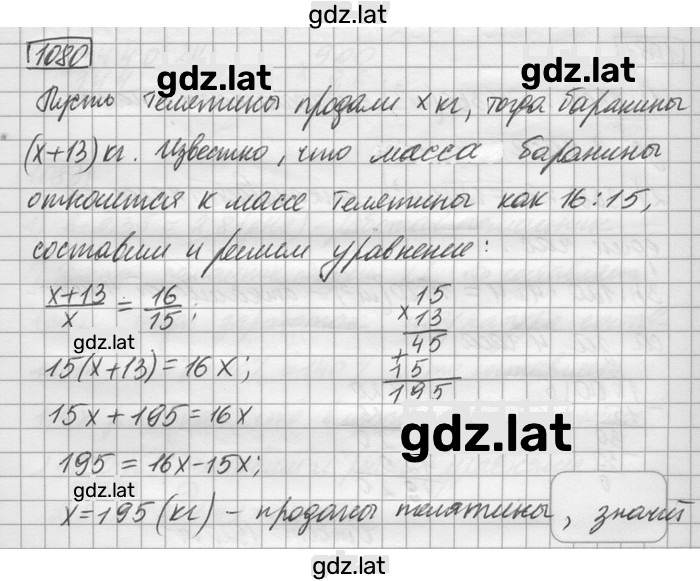 gdz.lat
1080
gdz.lat
gdz.lat
Пусть телятины продали x кг, тогда баранины
(x+13) кг. Известно, что масса баранины
относится к массе телятины как 16:15,
составим и решим уравнение:
x+13/x = 16/15;
15
× 13
45
+ 15
195
gdz.lat
15(x+13)=16x;
15x+195=16x
gdz.lat
195=16x-15x;
gdz.lat
x=195 (кг) - проданы телятины, значит
gdz.lat